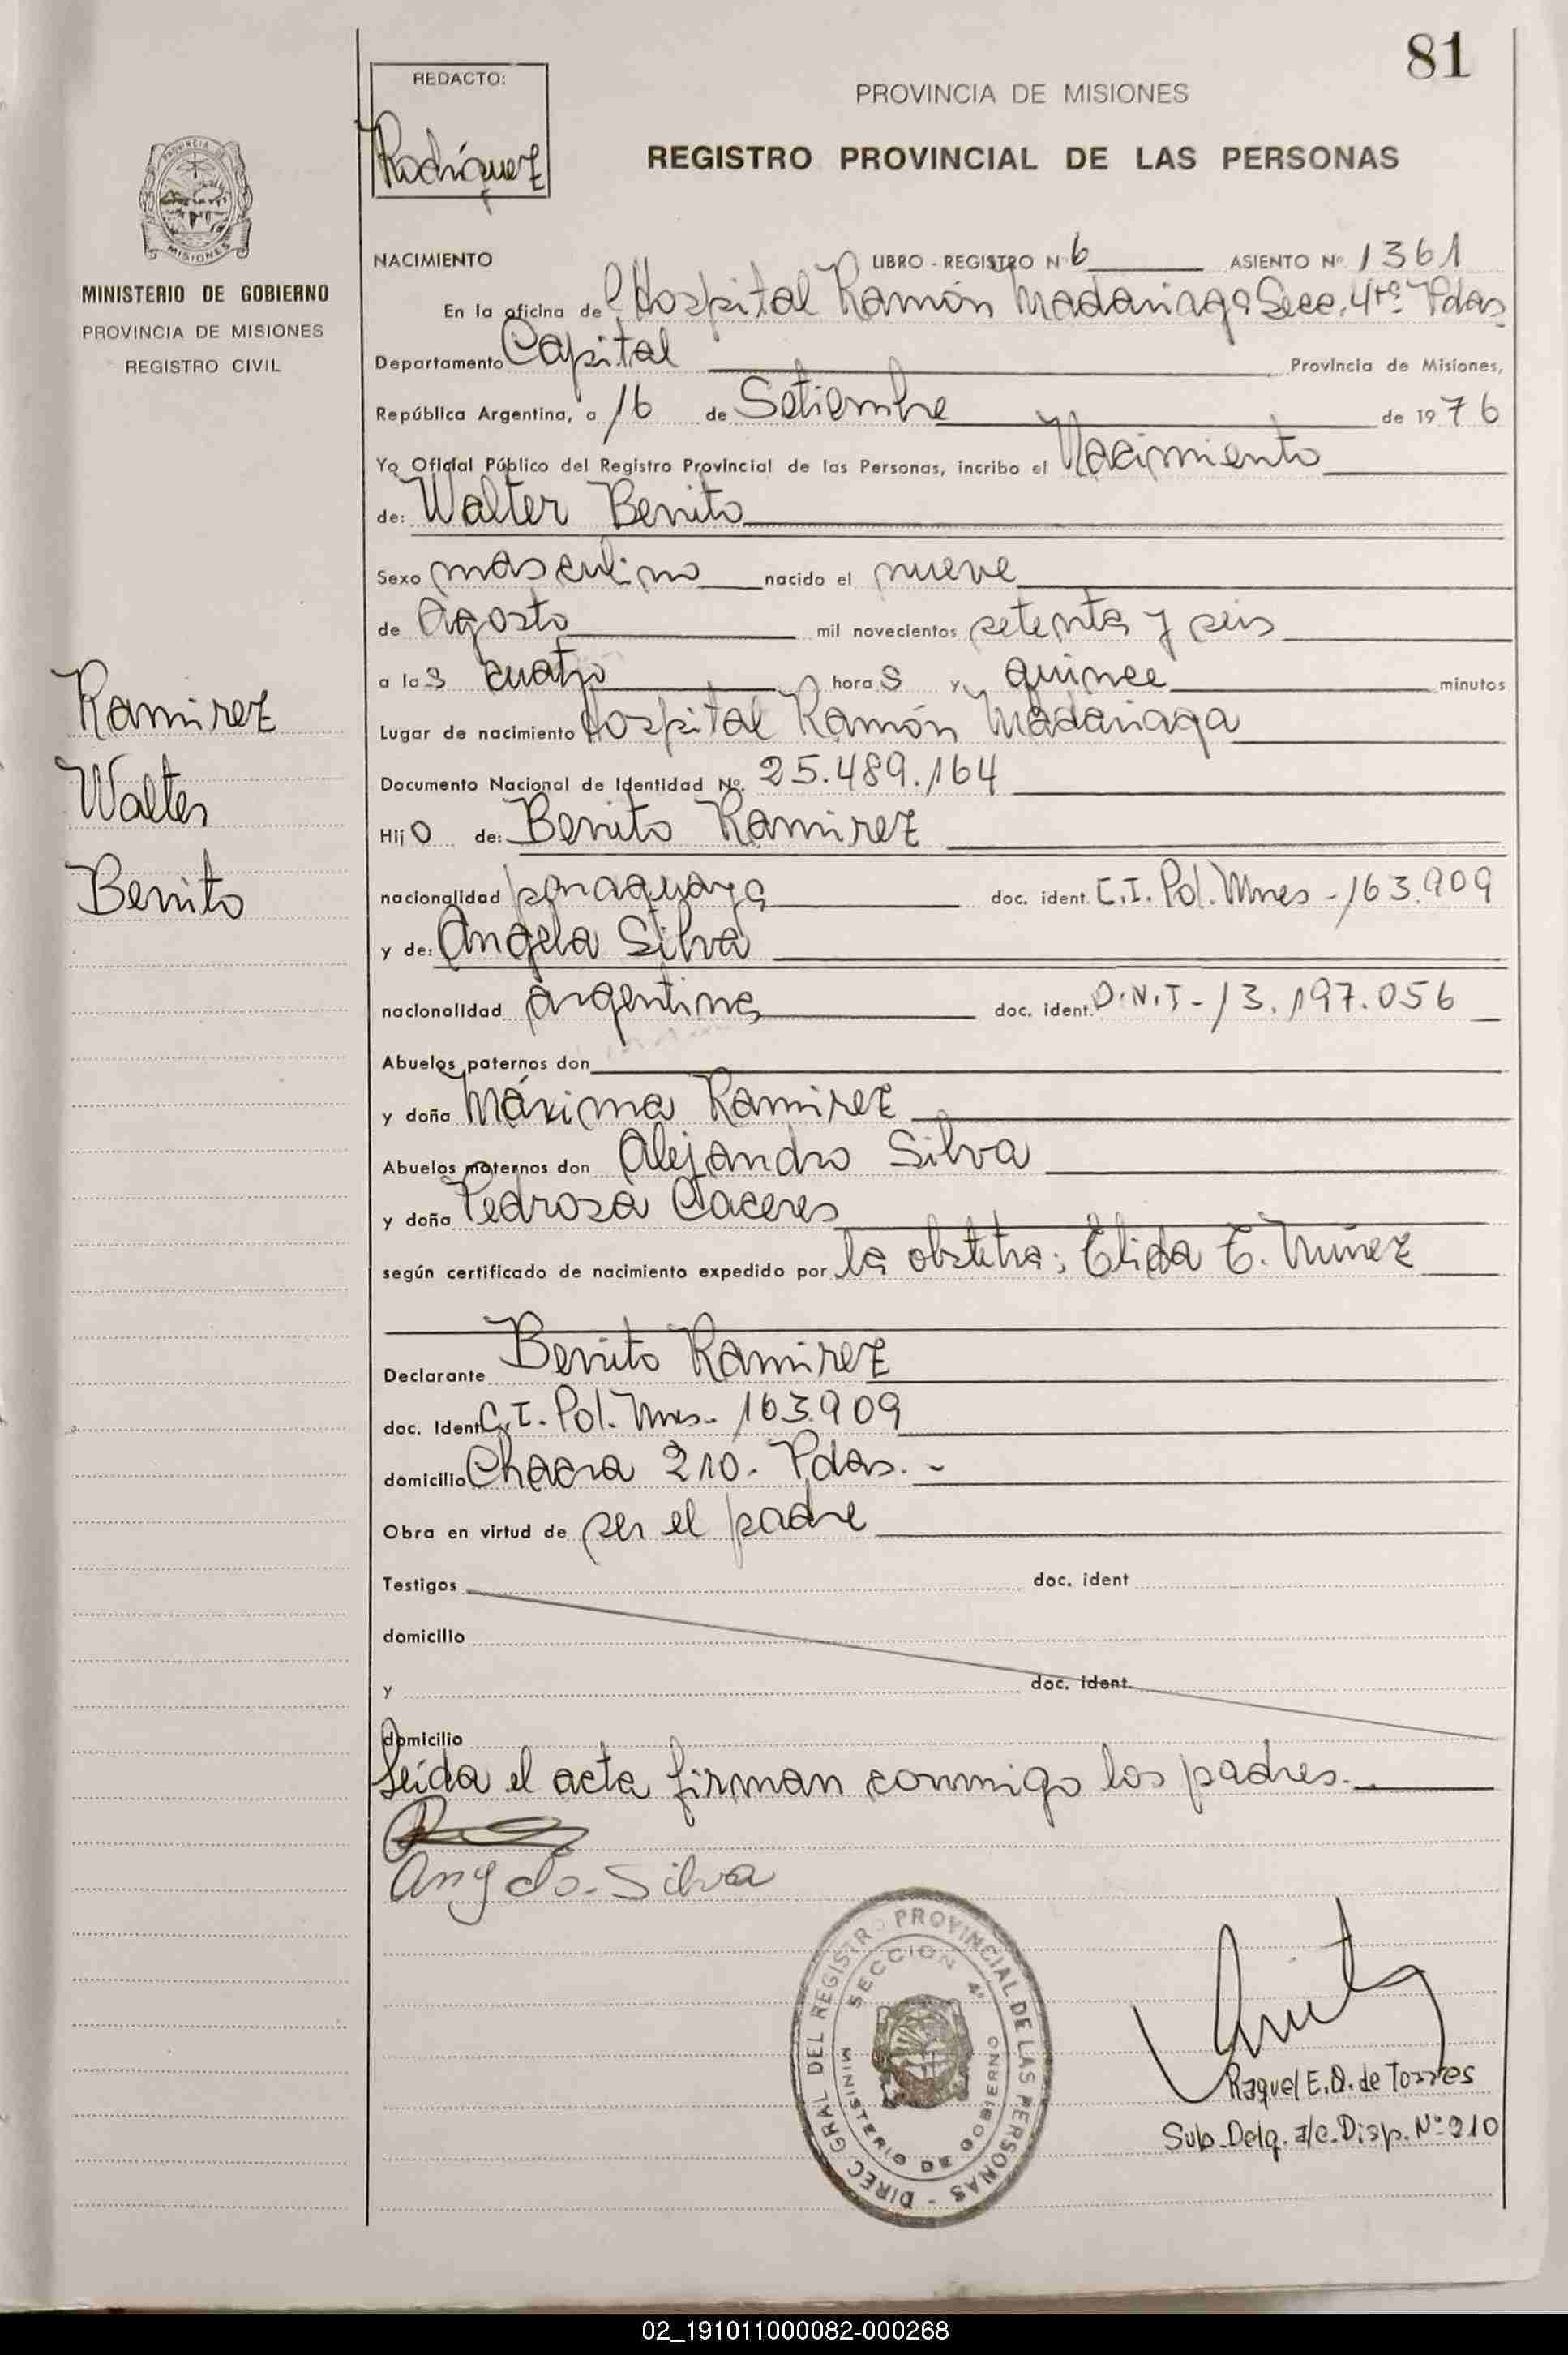 81
REDACTO:
Rodríguez
PROVINCIA DE MISIONES
REGISTRO PROVINCIAL DE LAS PERSONAS
PROVINCIA DE
MISIONES
MINISTERIO DE GOBIERNO
PROVINCIA DE MISIONES
REGISTRO CIVIL
Ramirez
Walter
Benito
NACIMIENTO LIBRO - REGISTRO Nº 6 ASIENTO Nº 1361
En la oficina del Hospital Ramón Madariaga Secc. 4ta. Pdas.
Departamento Capital Provincia de Misiones,
República Argentina, a 16 de Setiembre de 1976
Yo Oficial Público del Registro Provincial de las Personas, incribo el Nacimiento
de: Walter Benito
Sexo masculino nacido el nueve
de Agosto mil novecientos setenta y seis
a las cuatro horas y quince minutos
Lugar de nacimiento Hospital Ramón Madariaga
Documento Nacional de Identidad Nº. 25.489.164
Hijo de: Benito Ramirez
nacionalidad paraguaya doc. ident. C.I. Pol. Mnes - 163.909
y de: Angela Silva
nacionalidad argentina doc. ident. D.N.I - 13.197.056
Abuelos paternos don
y doña Máxima Ramirez
Abuelos maternos don Alejandro Silva
y doña Pedrosa Caceres
según certificado de nacimiento expedido por la obstetra: Elida E. Nuñez
Declarante Benito Ramirez
doc. Ident C.I. Pol. Mnes. 163.909
domicilio Chacra 210. Pdas. -
Obra en virtud de ser el padre
Testigos doc. ident
domicilio
y doc. ident.
domicilio
Leída el acta firman conmigo los padres.
Angela Silva
DIREC GRAL DEL REGISTRO PROVINCIAL DE LAS PERSONAS -
SECCION 4º
MINISTERIO DE GOBIERNO
Raquel E. Q. de Torres
Sub. Delg. a/c. Disp. Nº 210
02_191011000082-000268